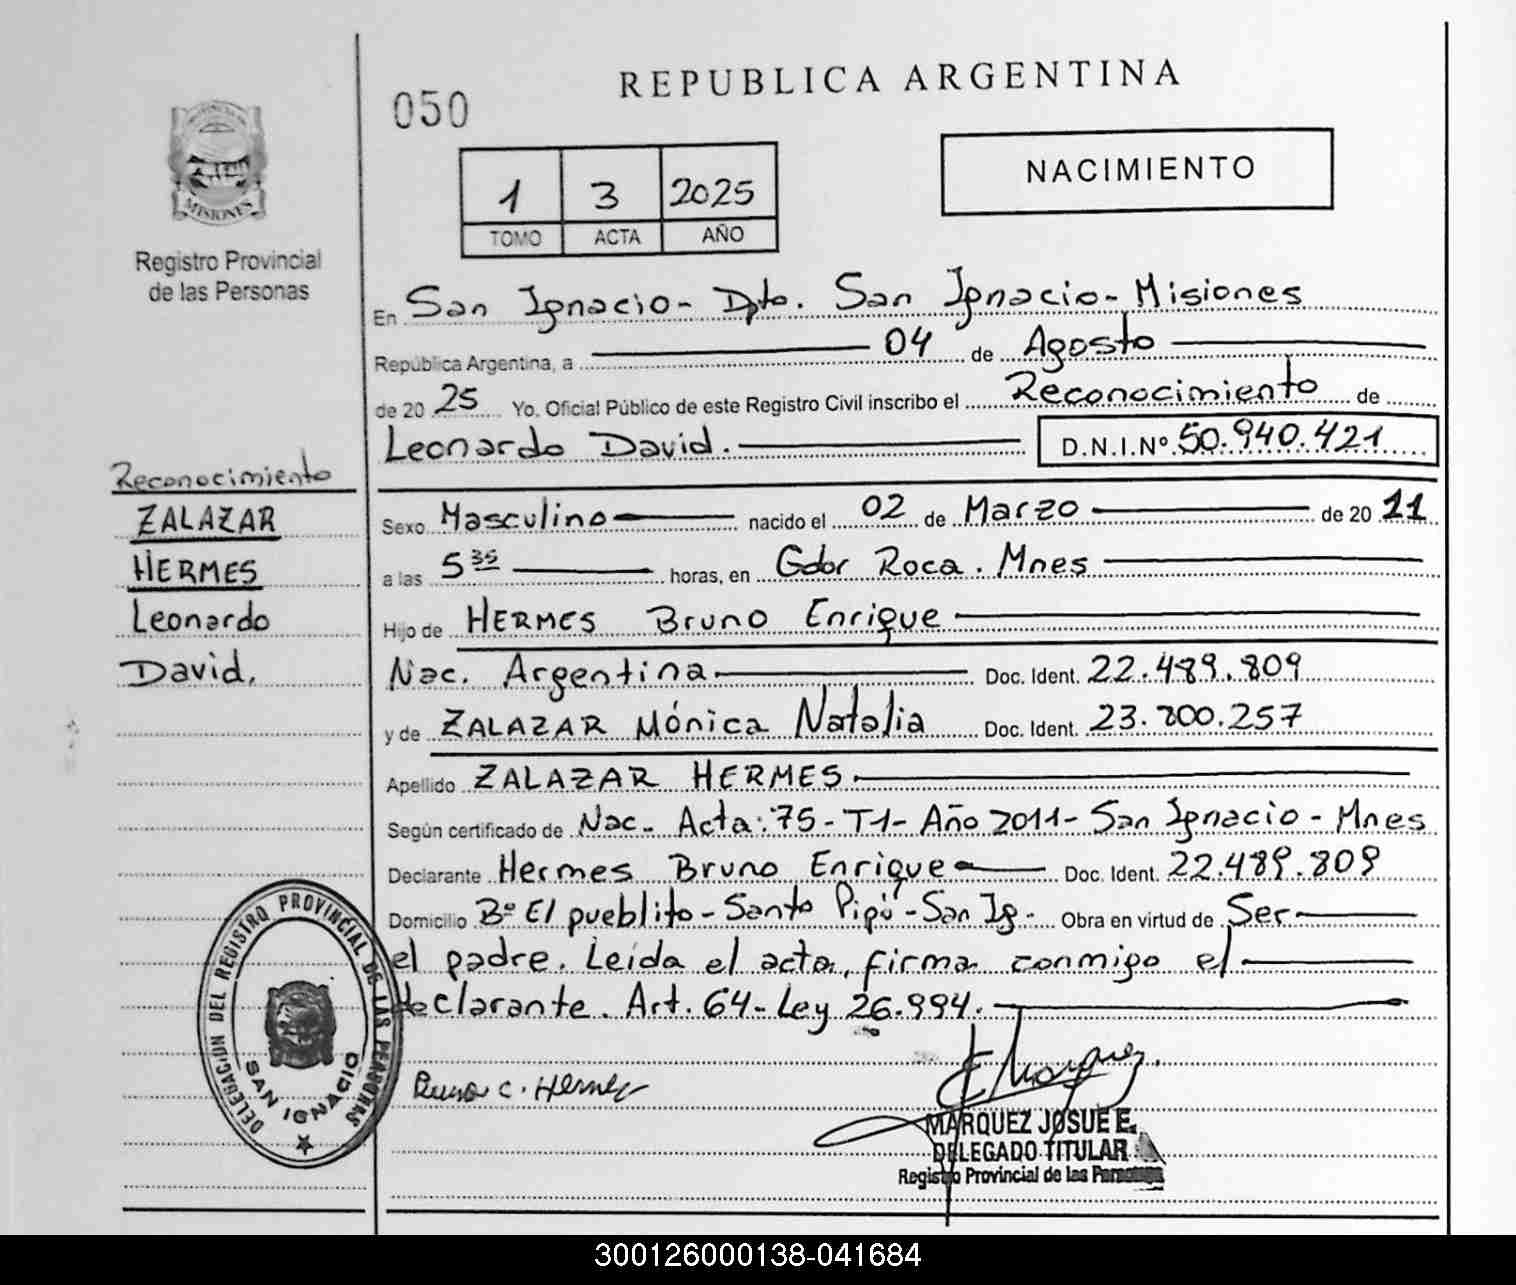 REPUBLICA ARGENTINA
050
1 3 2025
TOMO ACTA AÑO
NACIMIENTO
MISIONES
Registro Provincial
de las Personas
En San Ignacio - Dpto. San Ignacio - Misiones
República Argentina, a 04 de Agosto
de 20 25 Yo. Oficial Público de este Registro Civil inscribo el Reconocimiento de
Leonardo David. D.N.I.Nº 50.940.421
Reconocimiento
ZALAZAR
HERMES
Leonardo
David.
Sexo Masculino nacido el 02 de Marzo de 20 11
a las 5 35 horas, en Gdor Roca. Mnes
Hijo de HERMES Bruno Enrique
Nac. Argentina. Doc. Ident. 22.489.809
y de ZALAZAR Mónica Natalia Doc. Ident. 23.800.257
Apellido ZALAZAR HERMES.
Según certificado de Nac. Acta: 75 - T1 - Año 2011 - San Ignacio - Mnes
Declarante Hermes Bruno Enrique Doc. Ident. 22.489.809
Domicilio Bº El pueblito - Santo Pipó - San Ig. Obra en virtud de Ser
el padre. Leída el acta, firma conmigo el
declarante. Art. 64 - Ley 26.994.
DELEGACION DEL REGISTRO PROVINCIAL DE LAS PERSONAS
SAN IGNACIO
MARQUEZ JOSUE E.
DELEGADO TITULAR
Registro Provincial de las Personas
300126000138-041684